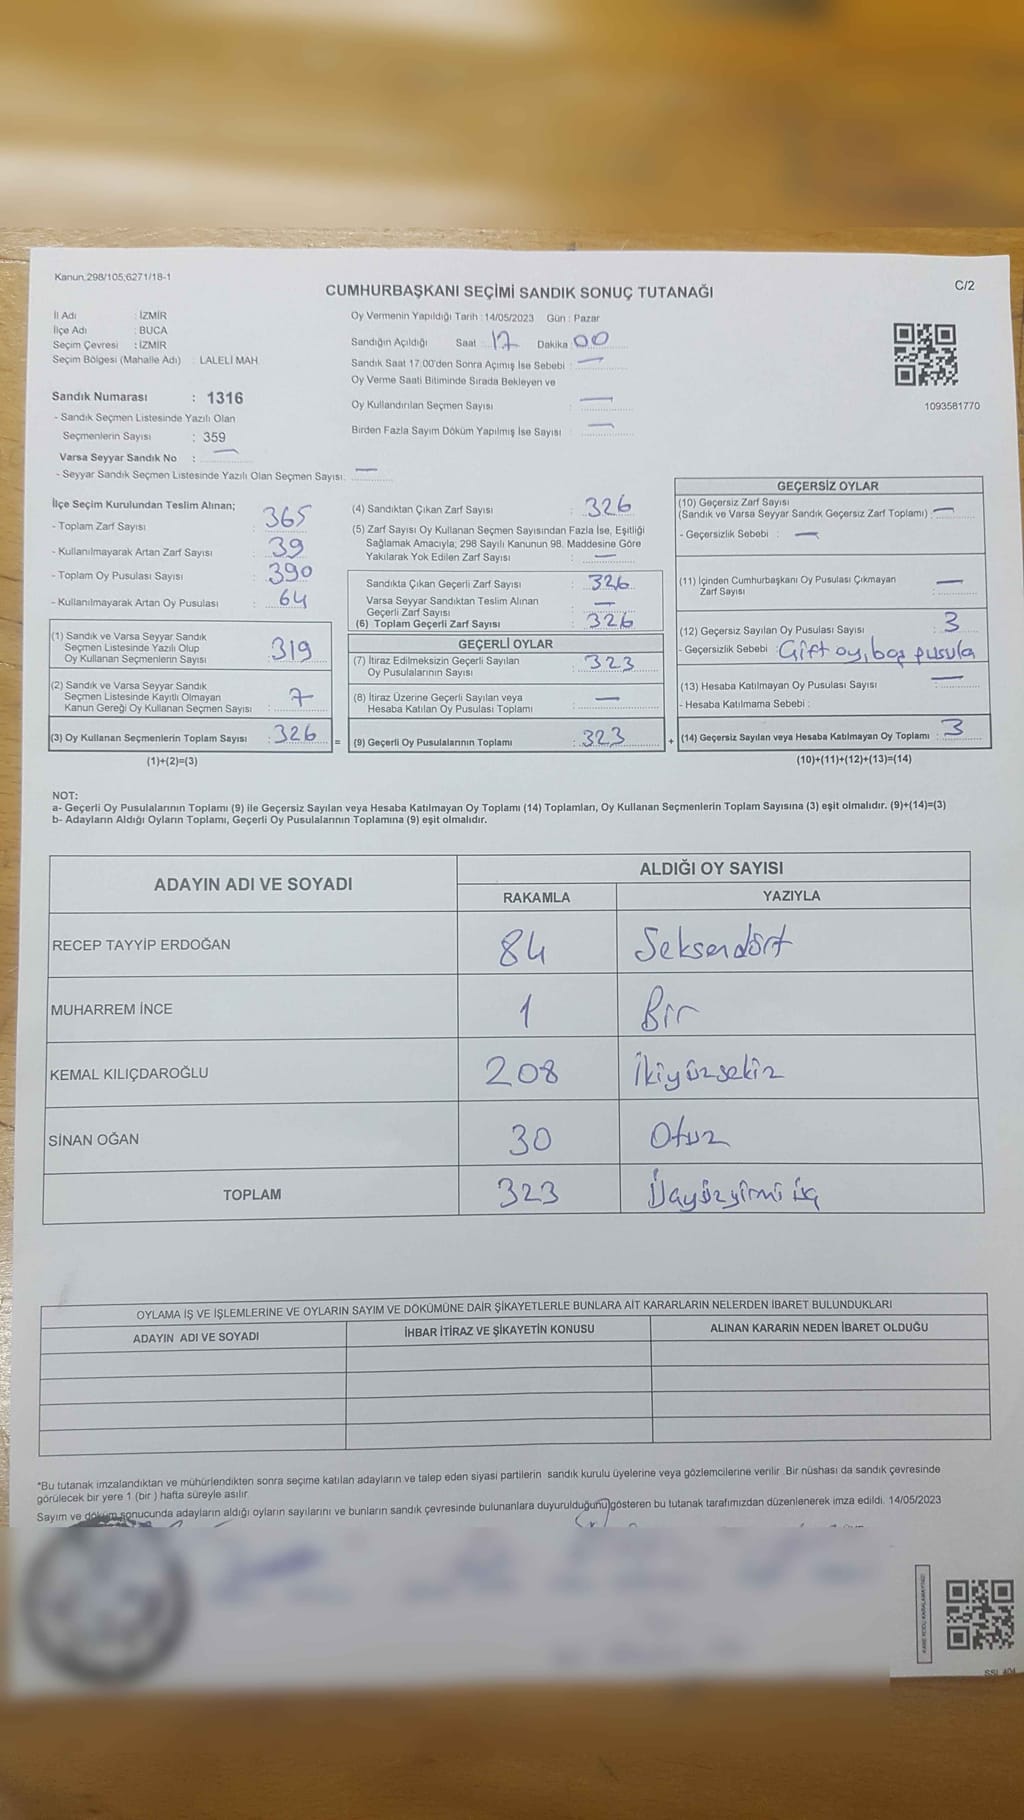 Kanun,298/105,6271/18-1
C/2
CUMHURBAŞKANI SEÇİMİ SANDIK SONUÇ TUTANAĞI
İl Adı : İZMİR
İlçe Adı : BUCA
Seçim Çevresi : İZMİR
Seçim Bölgesi (Mahalle Adı) : LALELİ MAH.
Sandık Numarası : 1316
- Sandık Seçmen Listesinde Yazılı Olan
Seçmenlerin Sayısı : 359
Varsa Seyyar Sandık No : —
- Seyyar Sandık Seçmen Listesinde Yazılı Olan Seçmen Sayısı: —
Oy Vermenin Yapıldığı Tarih : 14/05/2023 Gün : Pazar
Sandığın Açıldığı Saat 17 Dakika 00
Sandık Saat 17.00'den Sonra Açımış İse Sebebi : —
Oy Verme Saati Bitiminde Sırada Bekleyen ve
Oy Kullandırılan Seçmen Sayısı : —
Birden Fazla Sayım Döküm Yapılmış İse Sayısı : —
1093581770
İlçe Seçim Kurulundan Teslim Alınan;
- Toplam Zarf Sayısı : 365
- Kullanılmayarak Artan Zarf Sayısı : 39
- Toplam Oy Pusulası Sayısı : 390
- Kullanılmayarak Artan Oy Pusulası : 64
(1) Sandık ve Varsa Seyyar Sandık
Seçmen Listesinde Yazılı Olup
Oy Kullanan Seçmenlerin Sayısı : 319
(2) Sandık ve Varsa Seyyar Sandık
Seçmen Listesinde Kayıtlı Olmayan
Kanun Gereği Oy Kullanan Seçmen Sayısı : 7
(3) Oy Kullanan Seçmenlerin Toplam Sayısı : 326
(1)+(2)=(3)
=
(4) Sandıktan Çıkan Zarf Sayısı : 326
(5) Zarf Sayısı Oy Kullanan Seçmen Sayısından Fazla İse, Eşitliği
Sağlamak Amacıyla; 298 Sayılı Kanunun 98. Maddesine Göre
Yakılarak Yok Edilen Zarf Sayısı : —
Sandıkta Çıkan Geçerli Zarf Sayısı : 326
Varsa Seyyar Sandıktan Teslim Alınan
Geçerli Zarf Sayısı : —
(6) Toplam Geçerli Zarf Sayısı : 326
GEÇERLİ OYLAR
(7) İtiraz Edilmeksizin Geçerli Sayılan
Oy Pusulalarının Sayısı : 323
(8) İtiraz Üzerine Geçerli Sayılan veya
Hesaba Katılan Oy Pusulası Toplamı : —
(9) Geçerli Oy Pusulalarının Toplamı : 323
+
GEÇERSİZ OYLAR
(10) Geçersiz Zarf Sayısı
(Sandık ve Varsa Seyyar Sandık Geçersiz Zarf Toplamı) : —
- Geçersizlik Sebebi : —
(11) İçinden Cumhurbaşkanı Oy Pusulası Çıkmayan
Zarf Sayısı : —
(12) Geçersiz Sayılan Oy Pusulası Sayısı : 3
- Geçersizlik Sebebi : Çift oy, boş pusula
(13) Hesaba Katılmayan Oy Pusulası Sayısı : —
- Hesaba Katılmama Sebebi :
(14) Geçersiz Sayılan veya Hesaba Katılmayan Oy Toplamı : 3
(10)+(11)+(12)+(13)=(14)
NOT:
a- Geçerli Oy Pusulalarının Toplamı (9) ile Geçersiz Sayılan veya Hesaba Katılmayan Oy Toplamı (14) Toplamları, Oy Kullanan Seçmenlerin Toplam Sayısına (3) eşit olmalıdır. (9)+(14)=(3)
b- Adayların Aldığı Oyların Toplamı, Geçerli Oy Pusulalarının Toplamına (9) eşit olmalıdır.
ADAYIN ADI VE SOYADI ALDIĞI OY SAYISI
RAKAMLA YAZIYLA
RECEP TAYYİP ERDOĞAN 84 Seksendört
MUHARREM İNCE 1 Bir
KEMAL KILIÇDAROĞLU 208 İkiyüzsekiz
SİNAN OĞAN 30 Otuz
TOPLAM 323 Üçyüzyirmi üç
OYLAMA İŞ VE İŞLEMLERİNE VE OYLARIN SAYIM VE DÖKÜMÜNE DAİR ŞİKAYETLERLE BUNLARA AİT KARARLARIN NELERDEN İBARET BULUNDUKLARI
ADAYIN ADI VE SOYADI İHBAR İTİRAZ VE ŞİKAYETİN KONUSU ALINAN KARARIN NEDEN İBARET OLDUĞU
*Bu tutanak imzalandıktan ve mühürlendikten sonra seçime katılan adayların ve talep eden siyasi partilerin sandık kurulu üyelerine veya gözlemcilerine verilir .Bir nüshası da sandık çevresinde
görülecek bir yere 1 (bir ) hafta süreyle asılır.
Sayım ve döküm sonucunda adayların aldığı oyların sayılarını ve bunların sandık çevresinde bulunanlara duyurulduğunu gösteren bu tutanak tarafımızdan düzenlenerek imza edildi. 14/05/2023